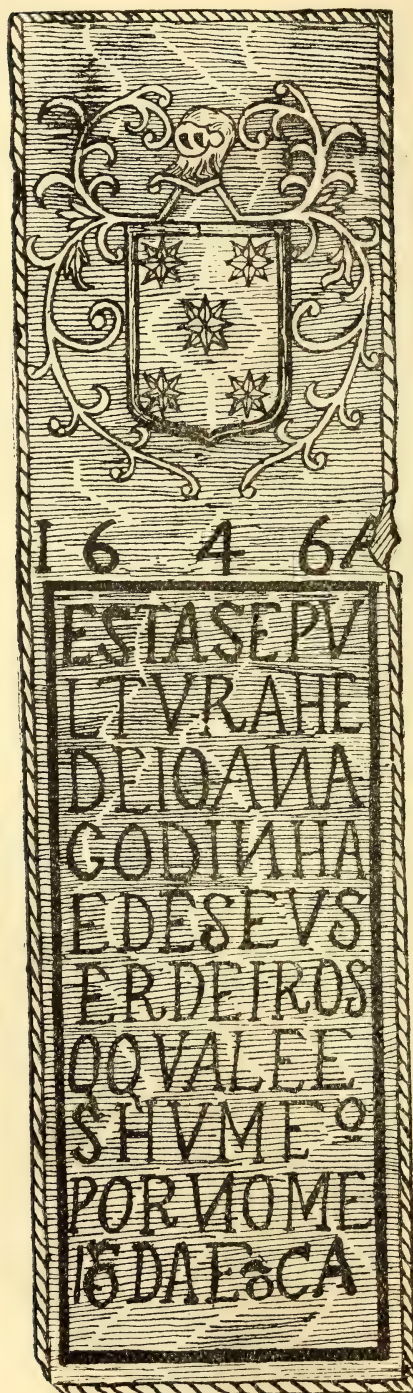 1 6 4 6 A
ESTASEPV
LTVRAHE
DEIOANA
GODINHA
EDESEVS
ERDEIROS
OQVALEE
SHVMEº
PORNOME